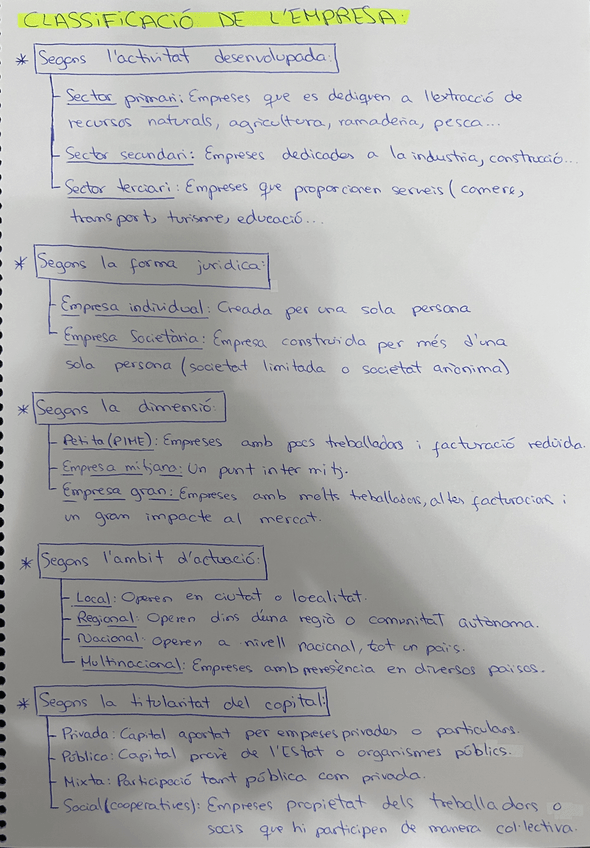 CLASSIFICACIÓ DE L'EMPRESA:
* Segons l'activitat desenvolupada:
Sector primari: Empreses que es dediquen a l'extracció de
recursos naturals, agricultura, ramaderia, pesca...
Sector secundari: Empreses dedicades a la industria, construcció...
Sector terciari: Empreses que proporcionen serveis (comerç,
transport, turisme, educació...
* Segons la forma juridica:
Empresa individual: Creada per una sola persona
Empresa Societària: Empresa construida per més d'una
sola persona (societat limitada o societat anònima)
* Segons la dimensió:
Petita (PIME): Empreses amb pocs treballadors i facturació reduida.
Empresa mitjana: Un punt intermitj.
Empresa gran: Empreses amb molts treballadors, altes facturacions i
un gran impacte al mercat.
* Segons l'ambit d'actuació:
Local: Operen en ciutat o localitat.
Regional: Operen dins d'una regió o comunitat autònoma.
Nacional: Operen a nivell nacional, tot un pais.
Multinacional: Empreses amb presència en diversos paisos.
* Segons la titularitat del capital:
Privada: Capital aportat per empreses privades o particulars.
Pública: Capital prové de l'Estat o organismes públics.
Mixta: Participació tant pública com privada.
Social (cooperatives): Empreses propietat dels treballadors o
socis que hi participen de manera col·lectiva.